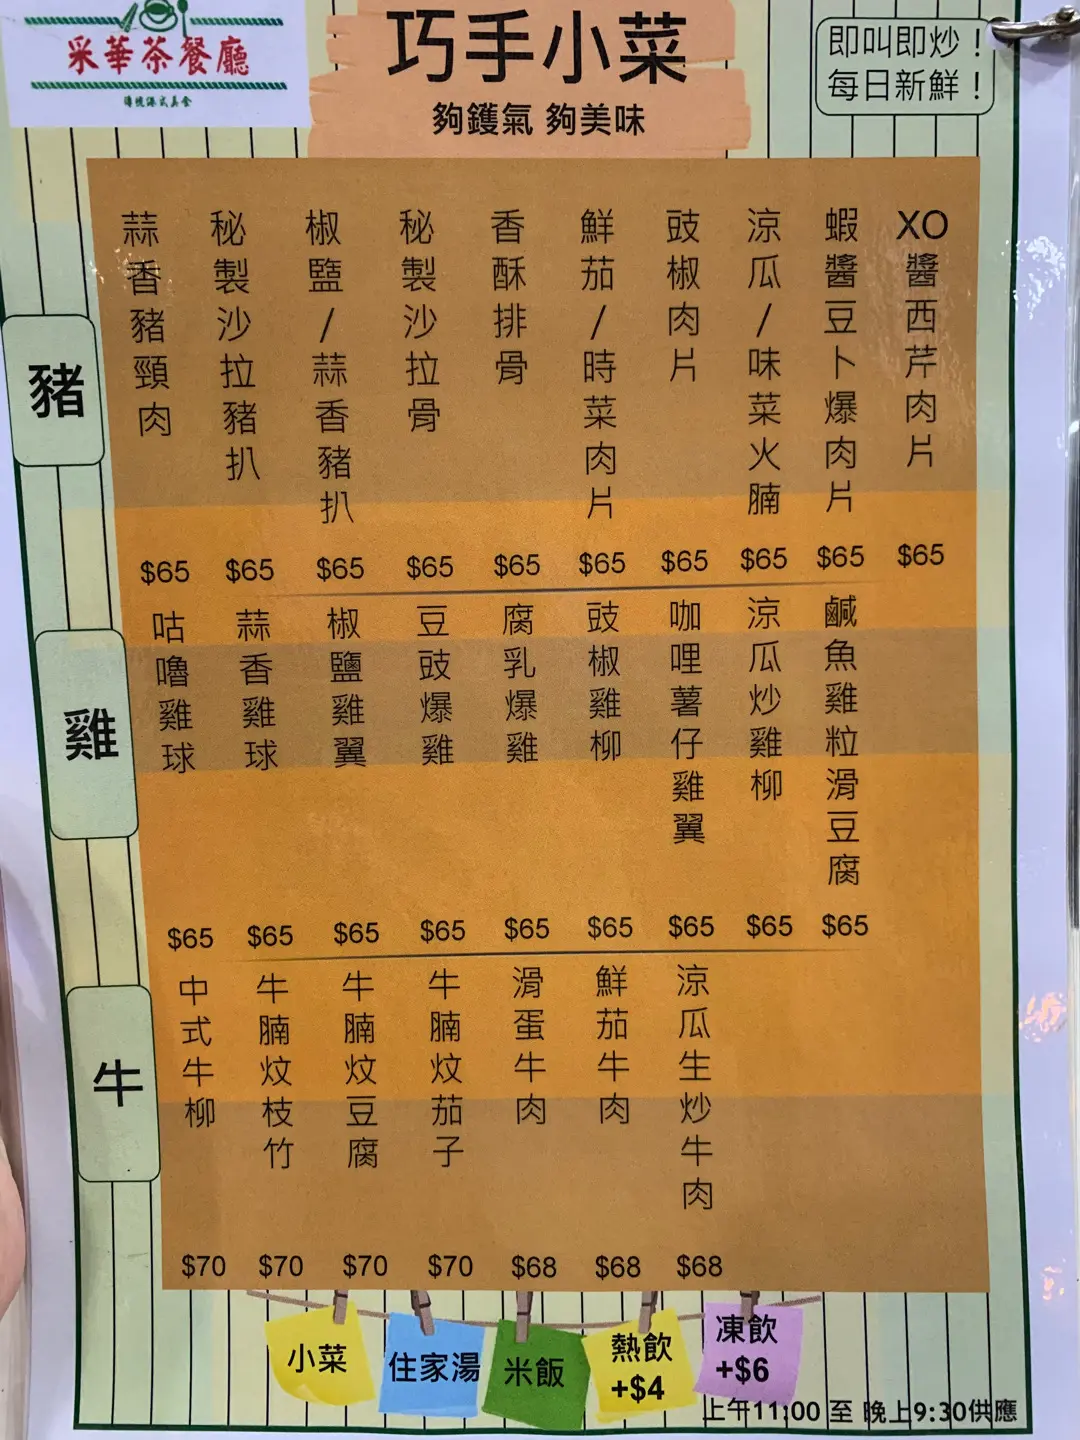 采華茶餐廳
傳統港式美食
巧手小菜
夠鑊氣 夠美味
即叫即炒！
每日新鮮！
豬
XO醬西芹肉片
$65
蝦醬豆卜爆肉片
$65
涼瓜/味菜火腩
$65
豉椒肉片
$65
鮮茄/時菜肉片
$65
香酥排骨
$65
秘製沙拉骨
$65
椒鹽/蒜香豬扒
$65
秘製沙拉豬扒
$65
蒜香豬頸肉
$65
雞
鹹魚雞粒滑豆腐
$65
涼瓜炒雞柳
$65
咖哩薯仔雞翼
$65
豉椒雞柳
$65
腐乳爆雞
$65
豆豉爆雞
$65
椒鹽雞翼
$65
蒜香雞球
$65
咕嚕雞球
$65
牛
涼瓜生炒牛肉
$68
鮮茄牛肉
$68
滑蛋牛肉
$68
牛腩炆茄子
$70
牛腩炆豆腐
$70
牛腩炆枝竹
$70
中式牛柳
$70
小菜
住家湯
米飯
熱飲
+$4
凍飲
+$6
上午11:00 至 晚上9:30供應